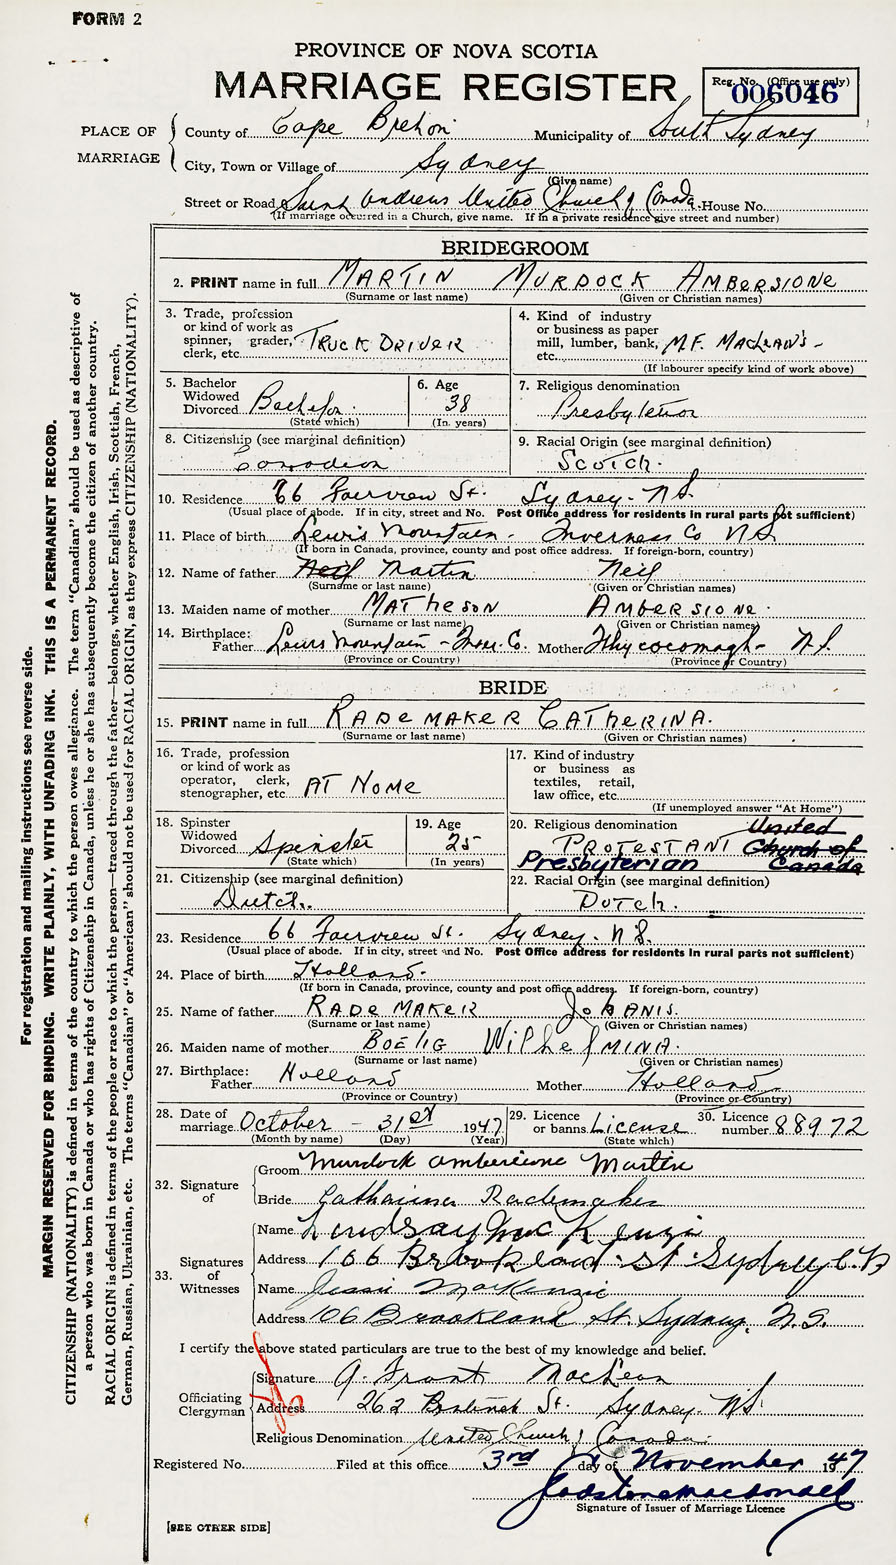 FORM 2
PROVINCE OF NOVA SCOTIA
MARRIAGE REGISTER
Reg. No. (Office use only)
006046
PLACE OF MARRIAGE
County of Cape Breton Municipality of South Sydney
City, Town or Village of Sydney
(Give name)
Street or Road Saint Andrews United Church of Canada House No.
(If marriage occurred in a Church, give name. If in a private residence give street and number)
BRIDEGROOM
2. PRINT name in full MARTIN MURDOCK AMBERSIONE
(Surname or last name) (Given or Christian names)
3. Trade, profession or kind of work as spinner, grader, clerk, etc. TRUCK DRIVER
4. Kind of industry or business as paper mill, lumber, bank, etc. M.F. MacLEAN'S
(If labourer specify kind of work above)
5. Bachelor Widowed Divorced Bachelor
(State which)
6. Age 38
(In years)
7. Religious denomination Presbyterian
8. Citizenship (see marginal definition)
Canadian
9. Racial Origin (see marginal definition)
Scotch.
10. Residence 66 Fairview St. Sydney. N.S.
(Usual place of abode. If in city, street and No. Post Office address for residents in rural parts not sufficient)
11. Place of birth Lewis Mountain - Inverness Co N.S.
(If born in Canada, province, county and post office address. If foreign-born, country)
12. Name of father Neil Martin Neil
(Surname or last name) (Given or Christian names)
13. Maiden name of mother MATHESON AMBERSIONE.
(Surname or last name) (Given or Christian names)
14. Birthplace: Father Lewis Mountain - Inver. Co. Mother Whycocomagh - N.S.
(Province or Country) (Province or Country)
BRIDE
15. PRINT name in full RADEMAKER CATHERINA.
(Surname or last name) (Given or Christian names)
16. Trade, profession or kind of work as operator, clerk, stenographer, etc. AT HOME
17. Kind of industry or business as textiles, retail, law office, etc.
(If unemployed answer "At Home")
18. Spinster Widowed Divorced Spinster
(State which)
19. Age 25
(In years)
20. Religious denomination United
PROTESTANT Church of
Presbyterian Canada
21. Citizenship (see marginal definition)
Dutch.
22. Racial Origin (see marginal definition)
DUTCH.
23. Residence 66 Fairview St. Sydney. N.S.
(Usual place of abode. If in city, street and No. Post Office address for residents in rural parts not sufficient)
24. Place of birth Holland.
(If born in Canada, province, county and post office address. If foreign-born, country)
25. Name of father RADEMAKER JOHANIS.
(Surname or last name) (Given or Christian names)
26. Maiden name of mother WilhelMINA.
(Surname or last name) (Given or Christian names)
27. Birthplace: Father Holland Mother Holland
(Province or Country) (Province or Country)
28. Date of marriage October - 31st 1947
(Month by name) (Day) (Year)
29. Licence or banns License
(State which)
30. Licence number 88972
32. Signature of
Groom Murdock Ambersione Martin
Bride Catharina Rademaker
33. Signatures of Witnesses
Name Lindsay MacKenzie
Address 166 Brookland St Sydney C.B
Name Jessie MacKenzie
Address 106 Brookland St. Sydney, N.S.
I certify the above stated particulars are true to the best of my knowledge and belief.
Officiating Clergyman
Signature A. Frank MacLean
Address 262 St. Sydney. N.S.
Religious Denomination United Church of Canada.
Registered No. Filed at this office 3rd day of November 1947
Gladstone Macdonald
Signature of Issuer of Marriage Licence
[SEE OTHER SIDE]
For registration and mailing instructions see reverse side.
MARGIN RESERVED FOR BINDING. WRITE PLAINLY, WITH UNFADING INK. THIS IS A PERMANENT RECORD.
CITIZENSHIP (NATIONALITY) is defined in terms of the country to which the person owes allegiance. The term "Canadian" should be used as descriptive of
a person who was born in Canada or who has rights of Citizenship in Canada, unless he or she has subsequently become the citizen of another country.
RACIAL ORIGIN is defined in terms of the people or race to which the person—traced through the father—belongs, whether English, Irish, Scottish, French,
German, Russian, Ukrainian, etc. The terms "Canadian" or "American" should not be used for RACIAL ORIGIN, as they express CITIZENSHIP (NATIONALITY).